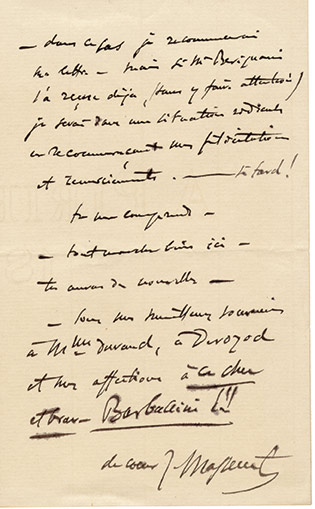 — dans ce cas je recommencerai
ma lettre — mais si Mr Bevignani
l'a reçue déjà, (sans y faire attention)
je serai dans une situation ridicule
en recommençant mes félicitations
et remerciements. — si tard!
tu me comprends —
— tout marche bien ici —
tu auras des nouvelles —
— tous mes meilleurs souvenirs
à Mme Durand, à Derozod
et mes affections à ce cher
et brave Barbacini !!!
de cœur J. Massenet